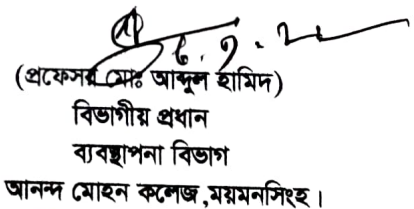 (প্রফেসর মোঃ আব্দুল হামিদ)
বিভাগীয় প্রধান
ব্যবস্থাপনা বিভাগ
আনন্দ মোহন কলেজ,ময়মনসিংহ।